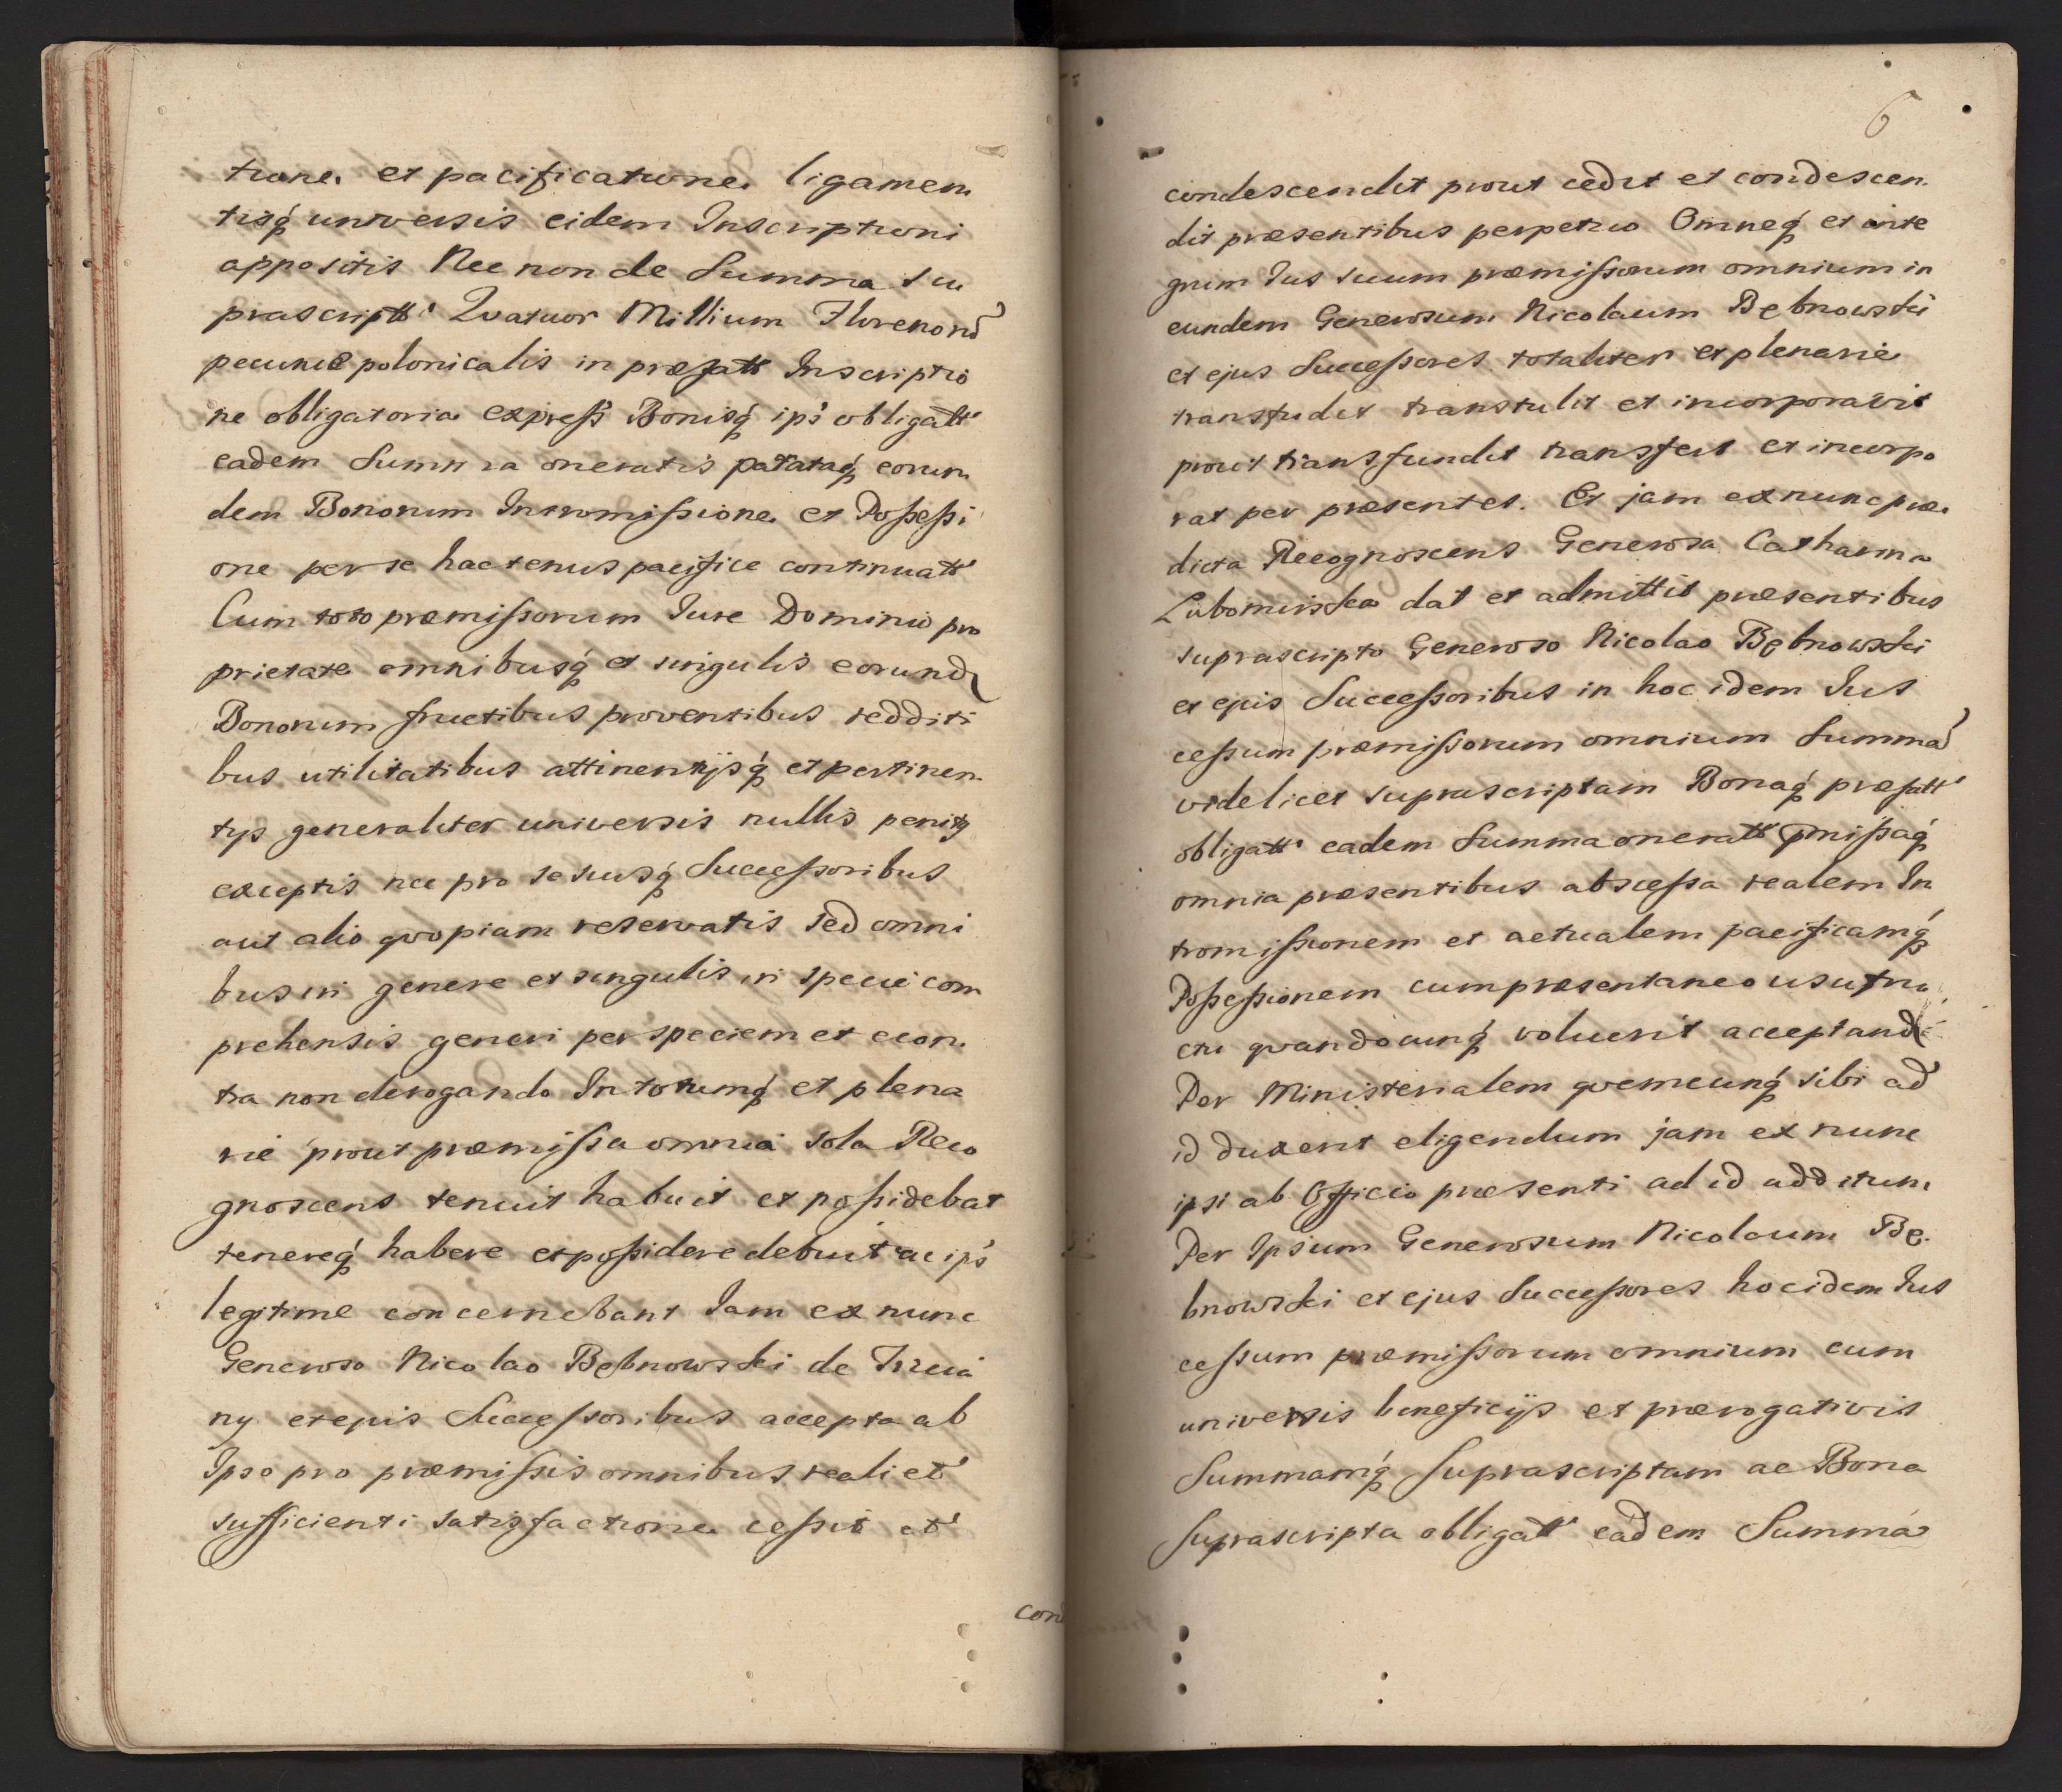 tione et pacificatione ligamen
tisq́ universis eidem Inscriptioni
appositis Nec non de Summa su
prascriptt Qvatuor Millium Florenorũ
pecuniæ polonicalis in præfatt Inscriptio
ne obligatoria express Bonisq́ ips obligatt
eadem Summa oneratis patataq́ eorun
dem Bonorum Intromissione et Possessi
one per se hactenus pacifice continuatt
Cum toto præmissorum Iure Dominio pro
prietate omnibusq́ et singulis eorund
Bonorum fructibus proventibus redditi
bus utilitatibus attinentijsq́ et pertinen
tijs generaliter universis nullis penitq
exceptis nec pro se suisq́ Successoribus
aut alio qvopiam reservatis sed omni
bus in genere et singulis in specie com
prehensis generi per speciem et econ
tra non derogando In totumq́ et plena
rie prout præmissa omnia sola Reco
gnoscens tenuit habuit et possidebat
tenereq́ habere et possidere debuit ac ips
legitime concernebant Iam ex nunc
Generoso Nicolao Bębnowski de Trzcia
ny et ejus Successoribus accepta ab
Ipso pro præmissis omnibus reali et
sufficienti satisfactione cessit et
con
6
condescendit prout cedit et condescen
dit præsentibus perpetuo Omneq́ et inte
grum Ius suum præmissorum omnium in
eundem Generosum Nicolaum Bębnowski
et ejus Successores totaliter et plenarie
transfudit transtulit et incorporavit
prout transfundit transfert et incorpo
rat per præsentes. Et jam ex nunc præ
dicta Recognoscens Generosa Catharina
Lubomirska dat et admittit præsentibus
suprascripto Generoso Nicolao Bębnowski
et ejus Successoribus in hoc idem Ius
cessum præmissorum omnium Summã
videlicet suprascriptam Bonaq́ præfatt
obligatt eadem Summa oneratt pmissaq́
omnia præsentibus abscessa realem In
tromissionem et actualem pacificamq́
Possessionem cum præsentaneo usufru
ctu qvandocunq́ voluerit acceptand
Per Ministerialem qvemcunq́ sibi ad
id duxerit eligendum jam ex nunc
ipsi ab Officio præsenti ad id additum
Per Ipsum Generosum Nicolaum Bę
bnowski et ejus Successores hoc idem Ius
cessum præmissorum omnium cum
universis beneficijs et prærogativis
Summamq́ suprascriptam ac Bona
suprascripta obligatt eadem Summa